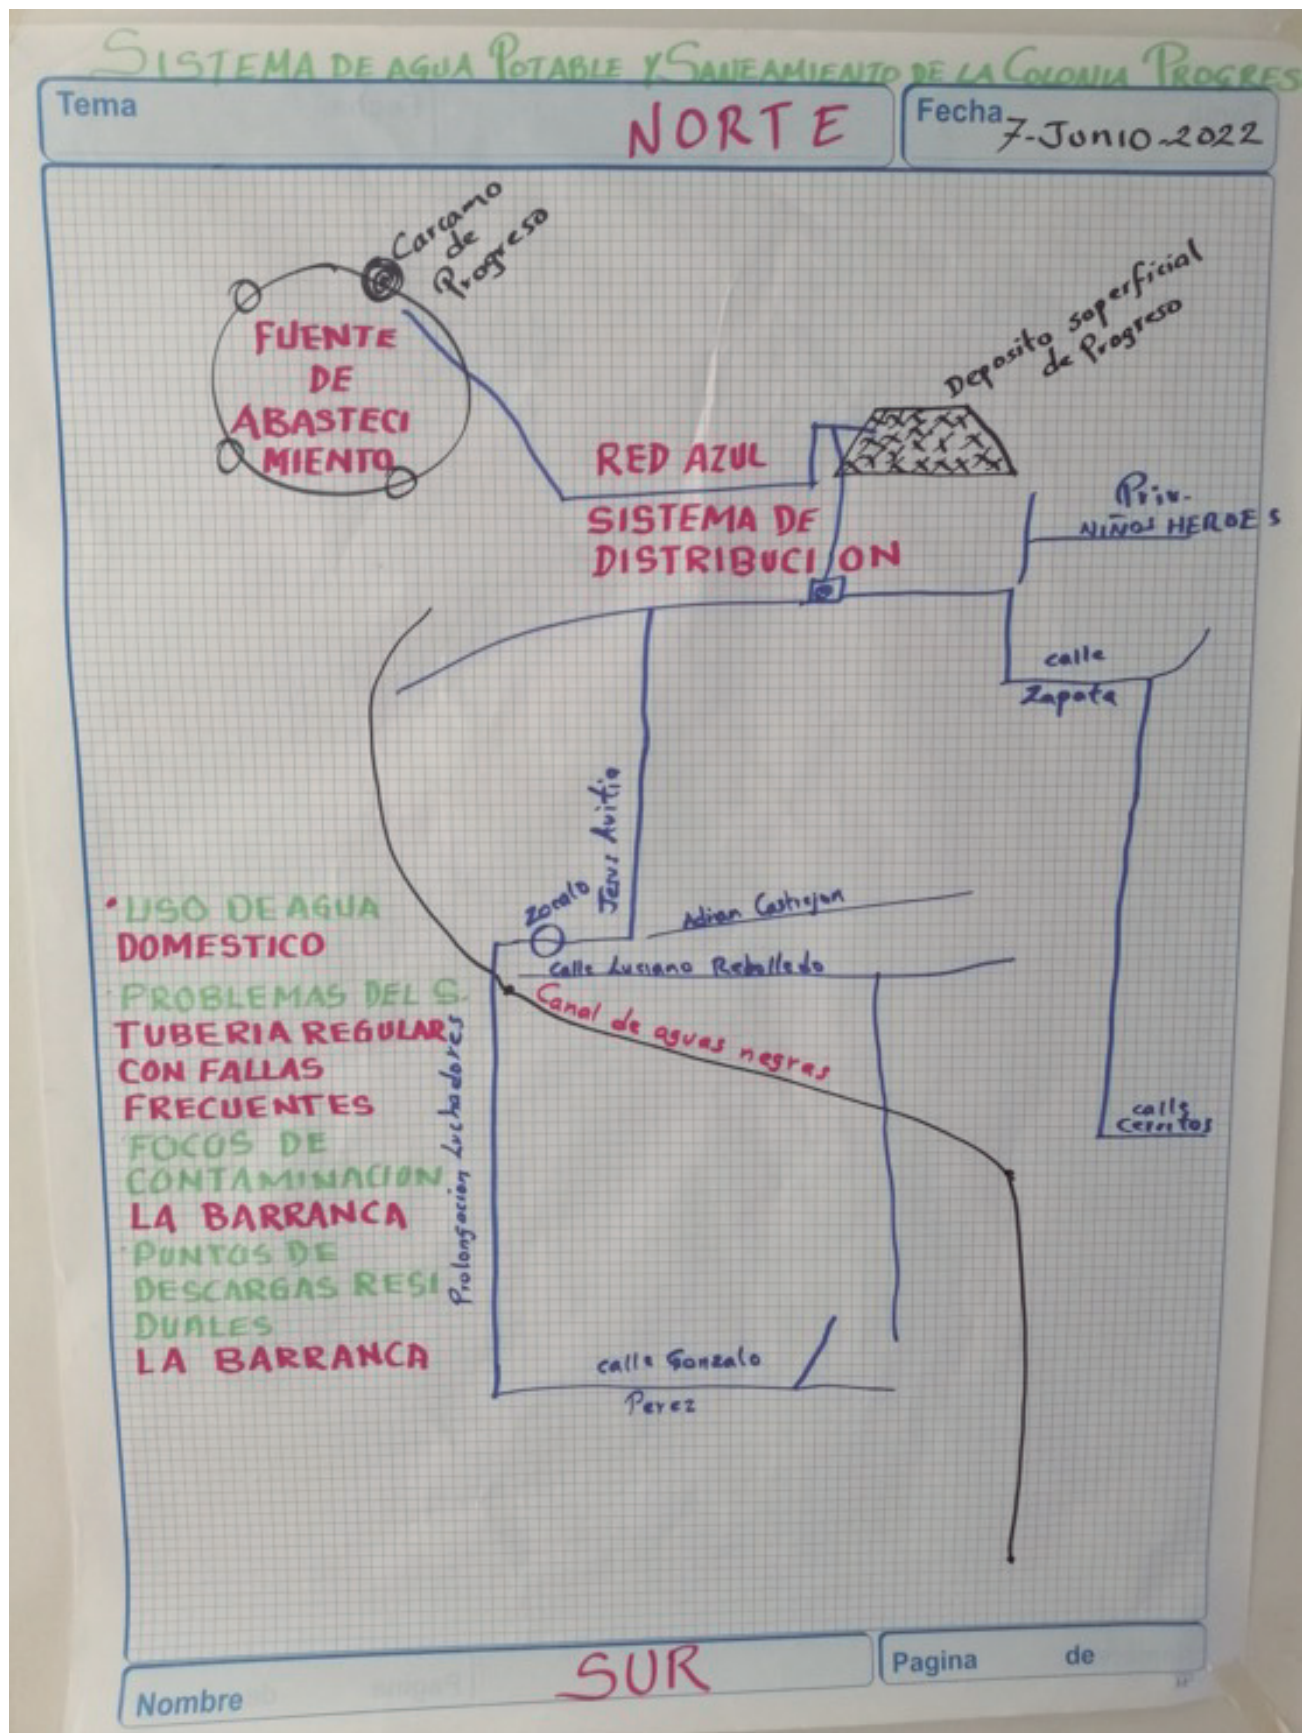 SISTEMA DE AGUA POTABLE Y SANEAMIENTO DE LA COLONIA PROGRES
Tema
NORTE
Fecha 7-Junio-2022
Carcamo
de
Progreso
FUENTE
DE
ABASTECI
MIENTO
Deposito superficial
de Progreso
RED AZUL
SISTEMA DE
DISTRIBUCION
Priv.
NIÑOS HEROES
calle
Zapata
Jesus Avitia
Zocalo
Adrian Castrejon
calle Luciano Reballedo
Canal de aguas negras
Prolongacion Luchadores
calle
Cerritos
calle Gonzalo
Perez
USO DE AGUA
DOMESTICO
PROBLEMAS DEL S.
TUBERIA REGULAR
CON FALLAS
FRECUENTES
FOCOS DE
CONTAMINACION
LA BARRANCA
PUNTOS DE
DESCARGAS RESI
DUALES
LA BARRANCA
SUR
Nombre
Pagina de